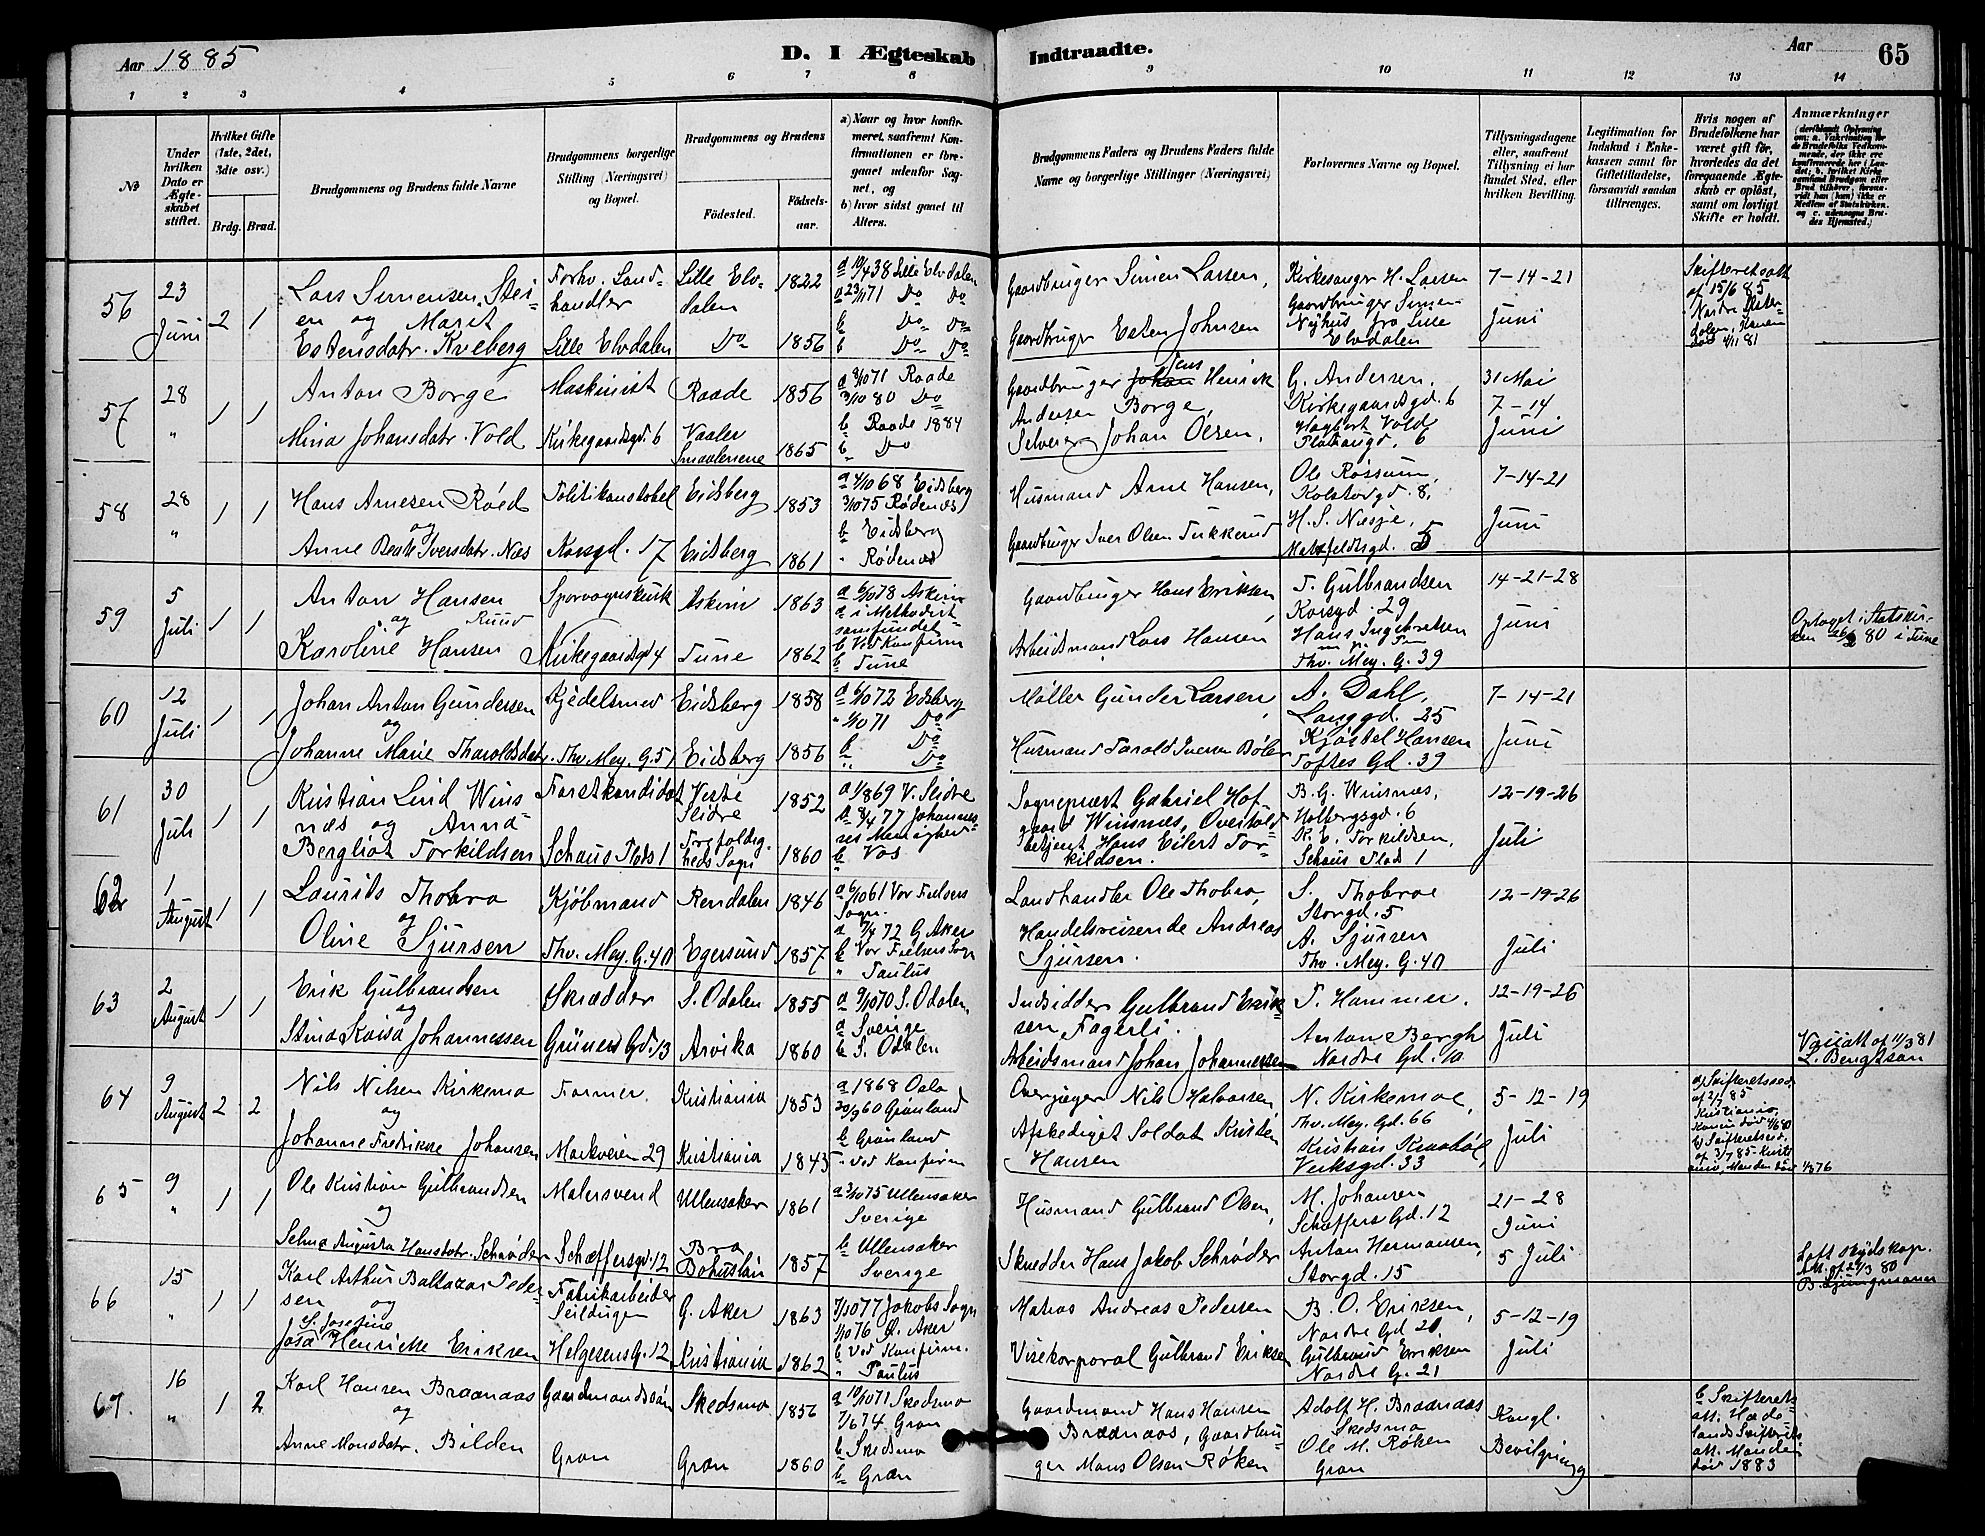 Aar 1885
D. I Ægteskab Indtraadte.
Aar
65
1 2 3 4 5 6 7 8 9 10 11 12 13 14
No
Under hvilken Dato er Ægteskabet stiftet.
Hvilket Gifte (1ste, 2det, 3dte osv.)
Brdg. Brud.
Brudgommens og Brudens fulde Navne
Brudgommens borgerlige Stilling (Næringsvei) og Bopæl.
Brudgommens og Brudens
Fødested.
Fødselsaar.
a) Naar og hvor konfirmeret, saafremt Konfirmationen er foregaaet udenfor Sognet, og
b) hvor sidst gaaet til Alters.
Brudgommens Faders og Brudens Faders fulde Navne og borgerlige Stillinger (Næringsvei)
Forlovernes Navne og Bopæl.
Tillysningsdagene eller, saafremt Tillysning ei har fundet Sted, efter hvilken Bevilling.
Legitimation for Indskud i Enkekassen samt for Giftetilladelse, forsaavidt saadan tiltrænges.
Hvis nogen af Brudefolkene har været gift før, hvorledes da det foregaaende Ægteskab er opløst, samt om lovligt Skifte er holdt.
Anmærkninger
56
23 Juni
2 1
Lars Simensen Steien og Marit
Estensdatr. Kveberg
Forhv. Landhandler
Lille Elvdalen
Lille Elvdalen
Do
1822
1856
a 10/438 Lille Elvdalen
a 23/1171 Do Do
b Do Do
b Do Do
Gaardbruger Simen Larsen,
Gaardbruger Esten Johnsen
Kirkesanger H. Larsen
Gaardbruger Simen
Nyhus fra Lille
Elvdalen
7-14-21
Juni
Skifteretsatt
af 15/6 85
57
28 "
1 1
Anton Borge
Mina Johansdatr. Vold
Maskinist
Kirkegaardsgd. 6
Raade
Vaaler
Smaalenene
1856
1865
a 3/1071 Raade
3/1080 Do
b Raade 1884
b Do
Gaardbruger Johan Jens Henrick
Andersen Borge,
Selveier Johan Olsen,
G. Andersen,
Kirkegaardsgd. 6
Hagbart Vold
31 Mai
7-14
Juni
58
28 "
1 1
Hans Arnesen Röed
og
Anne Beate Iversdatr. Næs
Politikonstabel
Korsgd. 17
Eidsberg
Eidsberg
1853
1861
a 4/1068 Eidsberg
3/1075 Rödenæs
b Eidsberg
" Rödenæs
Husmand Arne Hansen,
Gaardbruger Iver Olsen Tukkerud
Ole Rössum,
Kolstadgd. 8,
H. S. Næsje,
5
7-14-21
Juni
59
5 Juli
1 1
Anton Hansen
og Ruud
Karoline Hansen
Sporvognskusk
Kirkegaardsgd 4
Askim
Tune
1863
1862
a 6/1078 Askim
a i Methodist-
samfundet
b Ved Konfirm
b Tune
Gaardbruger Hans Eriksen,
Arbeidsmand Lars Hansen
T. Gulbrandsen
Korsgd. 29
Hans Ingebretsen
Thv. Mey. G. 39
14-21-28
Juni
Optaget i Statskir-
ken 80 i Tune
60
12 Juli
1 1
Johan Anton Gundersen
og
Johanne Marie Tharoldsdatr.
Kjedelsmed
Thv. Mey. G. 51
Eidsberg
Eidsberg
1858
1856
a 6/1072 Eidsberg
" 1/1071 Do
b Do
" Do
Møller Gunder Larsen,
Husmand Tarald Iversen Böler
A. Dahl,
Langgd. 25
Kjöstel Hansen
Toftes Gd. 39
7-14-21
Juni
61
30 Juli
1 1
Kristian Lind Wins
næs og Anna
Bergliot Torkildsen
Forstkandidat
Schous Plads 1
Vestre
Slidre
Trefoldig
heds Sogn
1852
1860
a 1/869 V. Slidre
a 8/477 Johannes
res Menighed
b Vos
Sogneprest Gabriel Hof
gaard Winsnæs, Overtold
betjent Hans Eilert Tor-
kildsen.
B. G. Winsnæs,
Holbergsgd. 6
R. E. Torkildsen,
Schous Plads 1
12-19-26
Juli
62
1 August
1 1
Laurits Thobro
og
Oline Sjursen
Kjöbmand
Thv. Mey. G. 40
Rendalen
Egersund
1846
1857
a 6/1061 Vor Frelsers
Sogn.
a 7/4 72 G. Aker
b Vor Frelsers Sogn
" Paulus
Landhandler Ole Thobro,
Handelsreisende Andreas
Sjursen.
S. Thobroe
Storgd. 5
A. Sjursen
Thv. Mey. G. 40
12-19-26
Juli
63
2 August
1 1
Erik Gulbrandsen
og
Stina Kaisa Johannessen
Skrædder
Grüners Gd. 13
S. Odalen
Arvika
1855
1860
a 9/1070 S. Odalen,
a Sverige
b S. Odalen
Indsidder Gulbrand Erik-
sen Fagerli.
Arbeidsmand Johan Johannessen
T. Hammer,
Anton Bergh
Nordre Gd. 10
12-19-26
Juli
af 11/3 81
L. Bengtson
64
9 August
2 2
Nils Nilsen Kirkemo
og
Johanne Fredrikke Johansen
Former.
Markveien 29
Kristiania
Kristiania
1853
1843
a 1868 Oslo
30/960 Grønland
b Grønland
" Ved Konfirm
Overjæger Nils Halvorsen
Afskediget Soldat Kristen
Hansen
N. Kirkemoe,
Thv. Mey. Gd. 66
Kristian Kraaböl,
Verksgd. 33
5-12-19
Juli
a) Skifteretsatt.
af 2/7 85
Kristiania,
Konen död 4/6 80
b) Skifteretsatt,
af 3/7 85 Kristi
ania, Manden död 1/3 76
65
9 "
1 1
Ole Kristian Gulbrandsen
og
Selma Augusta Hansdatr. Schröder
Malersvend
Schæffersgd. 12
Ullensaker
Bro
Bohuslän
1861
1857
a 3/1075 Ullensaker
Sverige
b Ullensaker
Sverige
Husmand Gulbrand Olsen,
Skrædder Hans Jakob Schröder
M. Johansen
Schæffers Gd. 12
Anton Hermansen,
Storgd. 15
21-28
Juni
5 Juli
66
15 "
1 1
Karl Arthur Baltazar Peder-
sen og
S. Josefine
Josa Henrikke Eriksen
Fabrikarbeider
Seildugen
Helgesens G. 12
G. Aker
Kristiania
1863
1862
7/1077 Jakobs Sogn
1/1076 G. Aker
b Ved Konfirm.
" Paulus
Matias Andreas Pedersen
Visekorporal Gulbrand Eriksen
B. O. Eriksen,
Nordre Gd 20,
Gulbrand Eriksen
Nordre G. 21
5-12-19
Juli
Att. af 27/3 80
B. Ljungmann
67.
16 "
1 2
Karl Hansen Braanaas
og
Anne Monsdatr. Bilden
Gaardmandssön
Gran
Skedsmo
Gran
1856
1860
a 10/1071 Skedsmo
7/674 Gran
b Skedsmo
b Gran
Gaardmand Hans Hansen
Braanaas, Gaardbru-
ger Mons Olsen Røken
Adolf H. Braanaas
Skedsmo
Ole M. Røken
Gran
Kongl.
Bevilgning
b Skifterets-
att. Hade-
lands Skifterets
att. Manden
död 1883